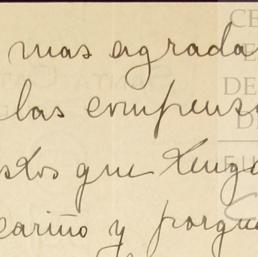 mas agrada
las compensa
stos que tenga
cariño y porque